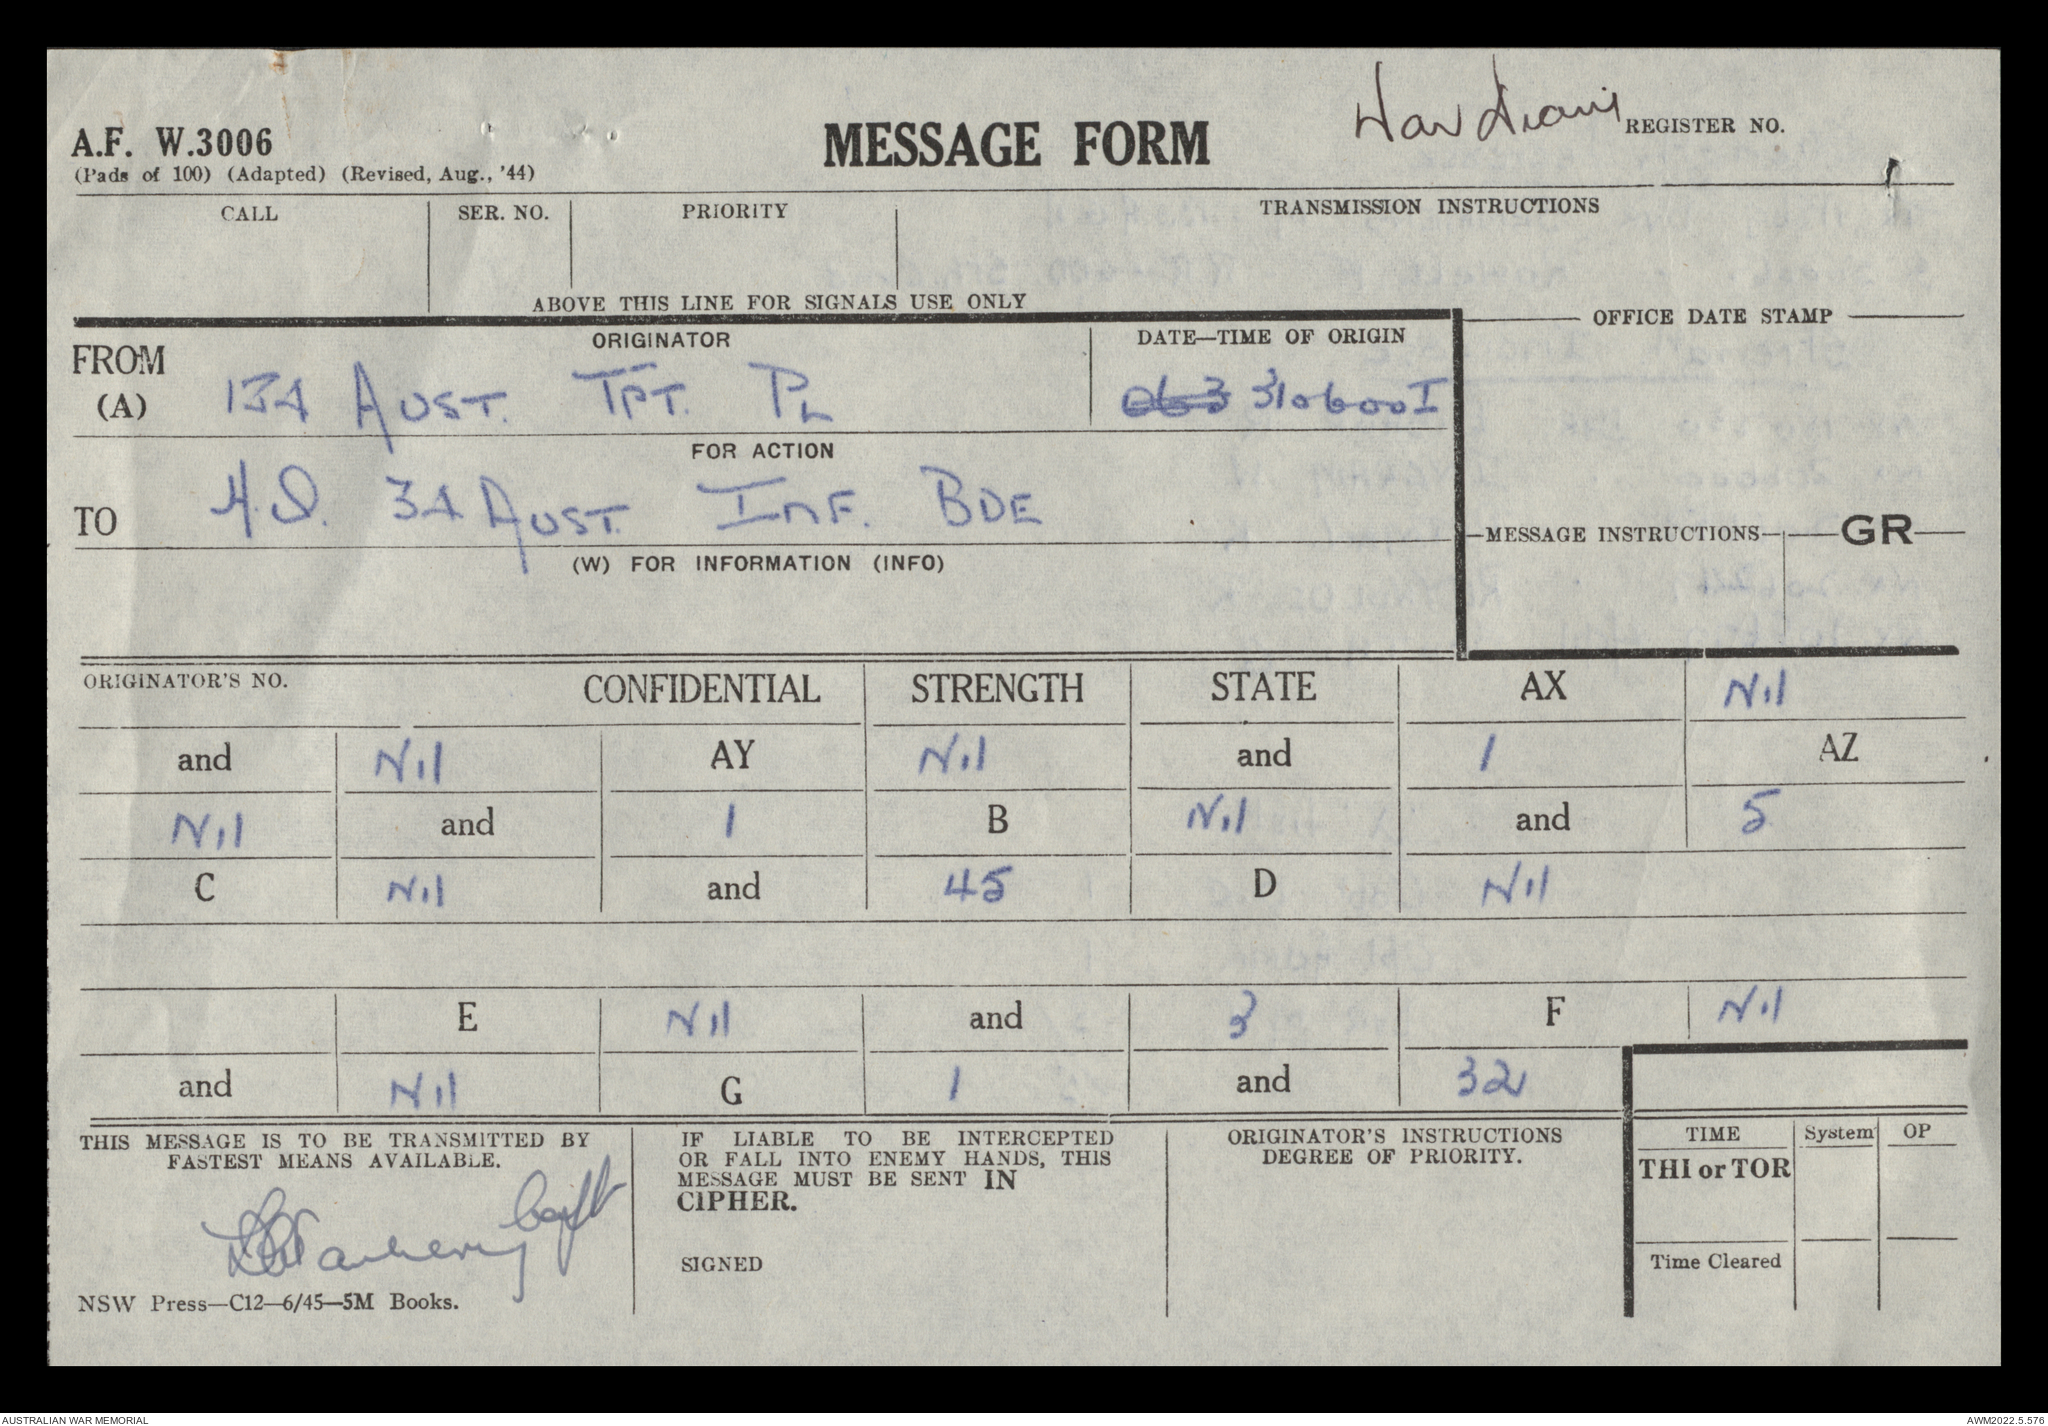 War Diary
A.F. W.3006
MESSAGE FORM
REGISTER NO.
(Pads of 100) (Adapted) (Revised, Aug., '44)
CALL SER. NO. PRIORITY TRANSMISSION INSTRUCTIONS
ABOVE THIS LINE FOR SIGNALS USE ONLY
ORIGINATOR DATE—TIME OF ORIGIN OFFICE DATE STAMP
FROM
(A) 134 AUST. TPT. PL 063 310600I
FOR ACTION
TO H.Q. 34 AUST. INF. BDE
MESSAGE INSTRUCTIONS GR
(W) FOR INFORMATION (INFO)
ORIGINATOR'S NO. CONFIDENTIAL STRENGTH STATE AX Nil
and Nil AY Nil and 1 AZ
Nil and 1 B Nil and 5
C Nil and 45 D Nil
E Nil and 3 F Nil
and Nil G 1 and 32
THIS MESSAGE IS TO BE TRANSMITTED BY
FASTEST MEANS AVAILABLE.
Capt
NSW Press—C12—6/45—5M Books.
IF LIABLE TO BE INTERCEPTED
OR FALL INTO ENEMY HANDS, THIS
MESSAGE MUST BE SENT IN
CIPHER.
SIGNED
ORIGINATOR'S INSTRUCTIONS
DEGREE OF PRIORITY.
TIME System OP
THI or TOR
Time Cleared
AUSTRALIAN WAR MEMORIAL AWM2022.5.576